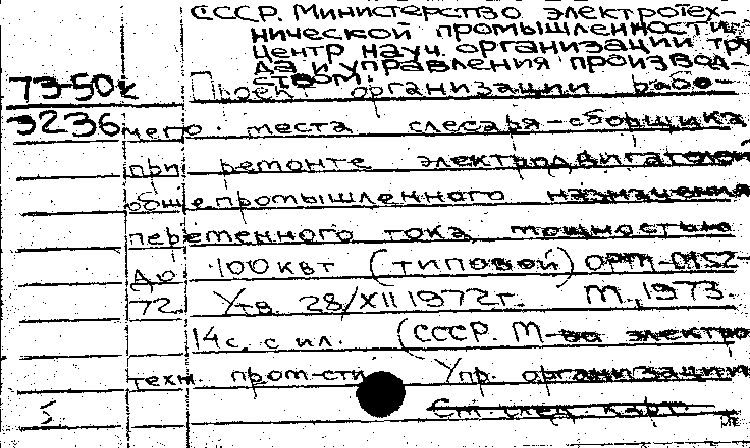 СССР. Министерство электротех-
нической промышленности.
Центр науч. организации тру
да и управления производ-
ством.
73-50к Проект организации рабо-
3236 чего места слесаря-сборщика
при ремонте электродвигателей
общепромышленного назначения
переменного тока мощностью
до 100 квт (типовой) ОРМ-0152-
72. Утв. 28/XII 1972г. М., 1973.
14с. с ил. (СССР. М-во электро
техн. пром-сти. Упр. организации
См след. карт.